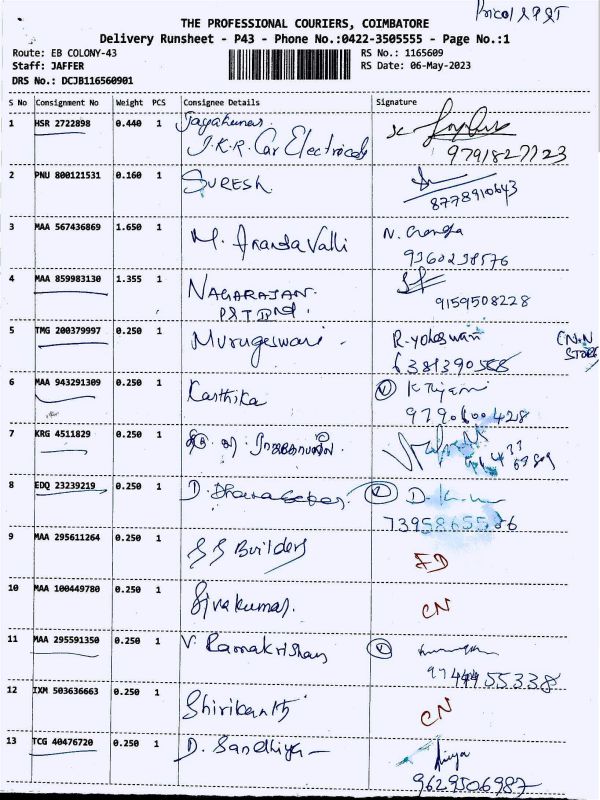 Pricol
THE PROFESSIONAL COURIERS, COIMBATORE
Delivery Runsheet - P43 - Phone No.:0422-3505555 - Page No.:1
Route: EB COLONY-43
RS No.: 1165609
Staff: JAFFER
RS Date: 06-May-2023
DRS No.: DCJB116560901
S No Consignment No Weight PCS Consignee Details Signature
1 HSR 2722898 0.440 1 Jayakumar
J.K.R. Car Electricals
9791827723
2 PNU 800121531 0.160 1 SURESH
8778910643
3 MAA 567436869 1.650 1 M. Ananda Valli N. Chandra
9360238576
4 MAA 859983130 1.355 1 NAGARAJAN
9159508228
5 TMG 200379997 0.250 1 Murugeswari R. yokeswari
CNN STORE
6381390588
6 MAA 943291309 0.250 1 Karthika
9790600428
7 KRG 4511829 0.250 1
8 EDQ 23239219 0.250 1 D. Dhanasekar
7395865586
9 MAA 295611264 0.250 1 SS Builders FD
10 MAA 100449780 0.250 1 Sivakumar CN
11 MAA 295591350 0.250 1 V. Ramakrishnan
9744455338
12 IXM 503636663 0.250 1 Shirikanth CN
13 TCG 40476720 0.250 1 D. Sandhiya
9629506987